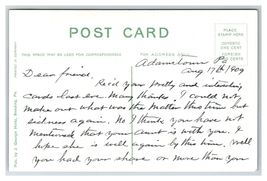 POST CARD
PLACE
STAMP HERE
DOMESTIC
ONE CENT
FOREIGN
TWO CENTS
THIS SPACE MAY BE USED FOR CORRESPONDENCE
THE ADDRESS
Adamstown Pa
Aug 17th 1909
Dear friend,
Rec'd your pretty and interesting
cards last eve. Many thanks, I could not
make out what was the matter this time but
sickness again. No I think you have not
mentioned that your aunt is with you. I
hope she is well again by this time. Well
you had your share or more than you